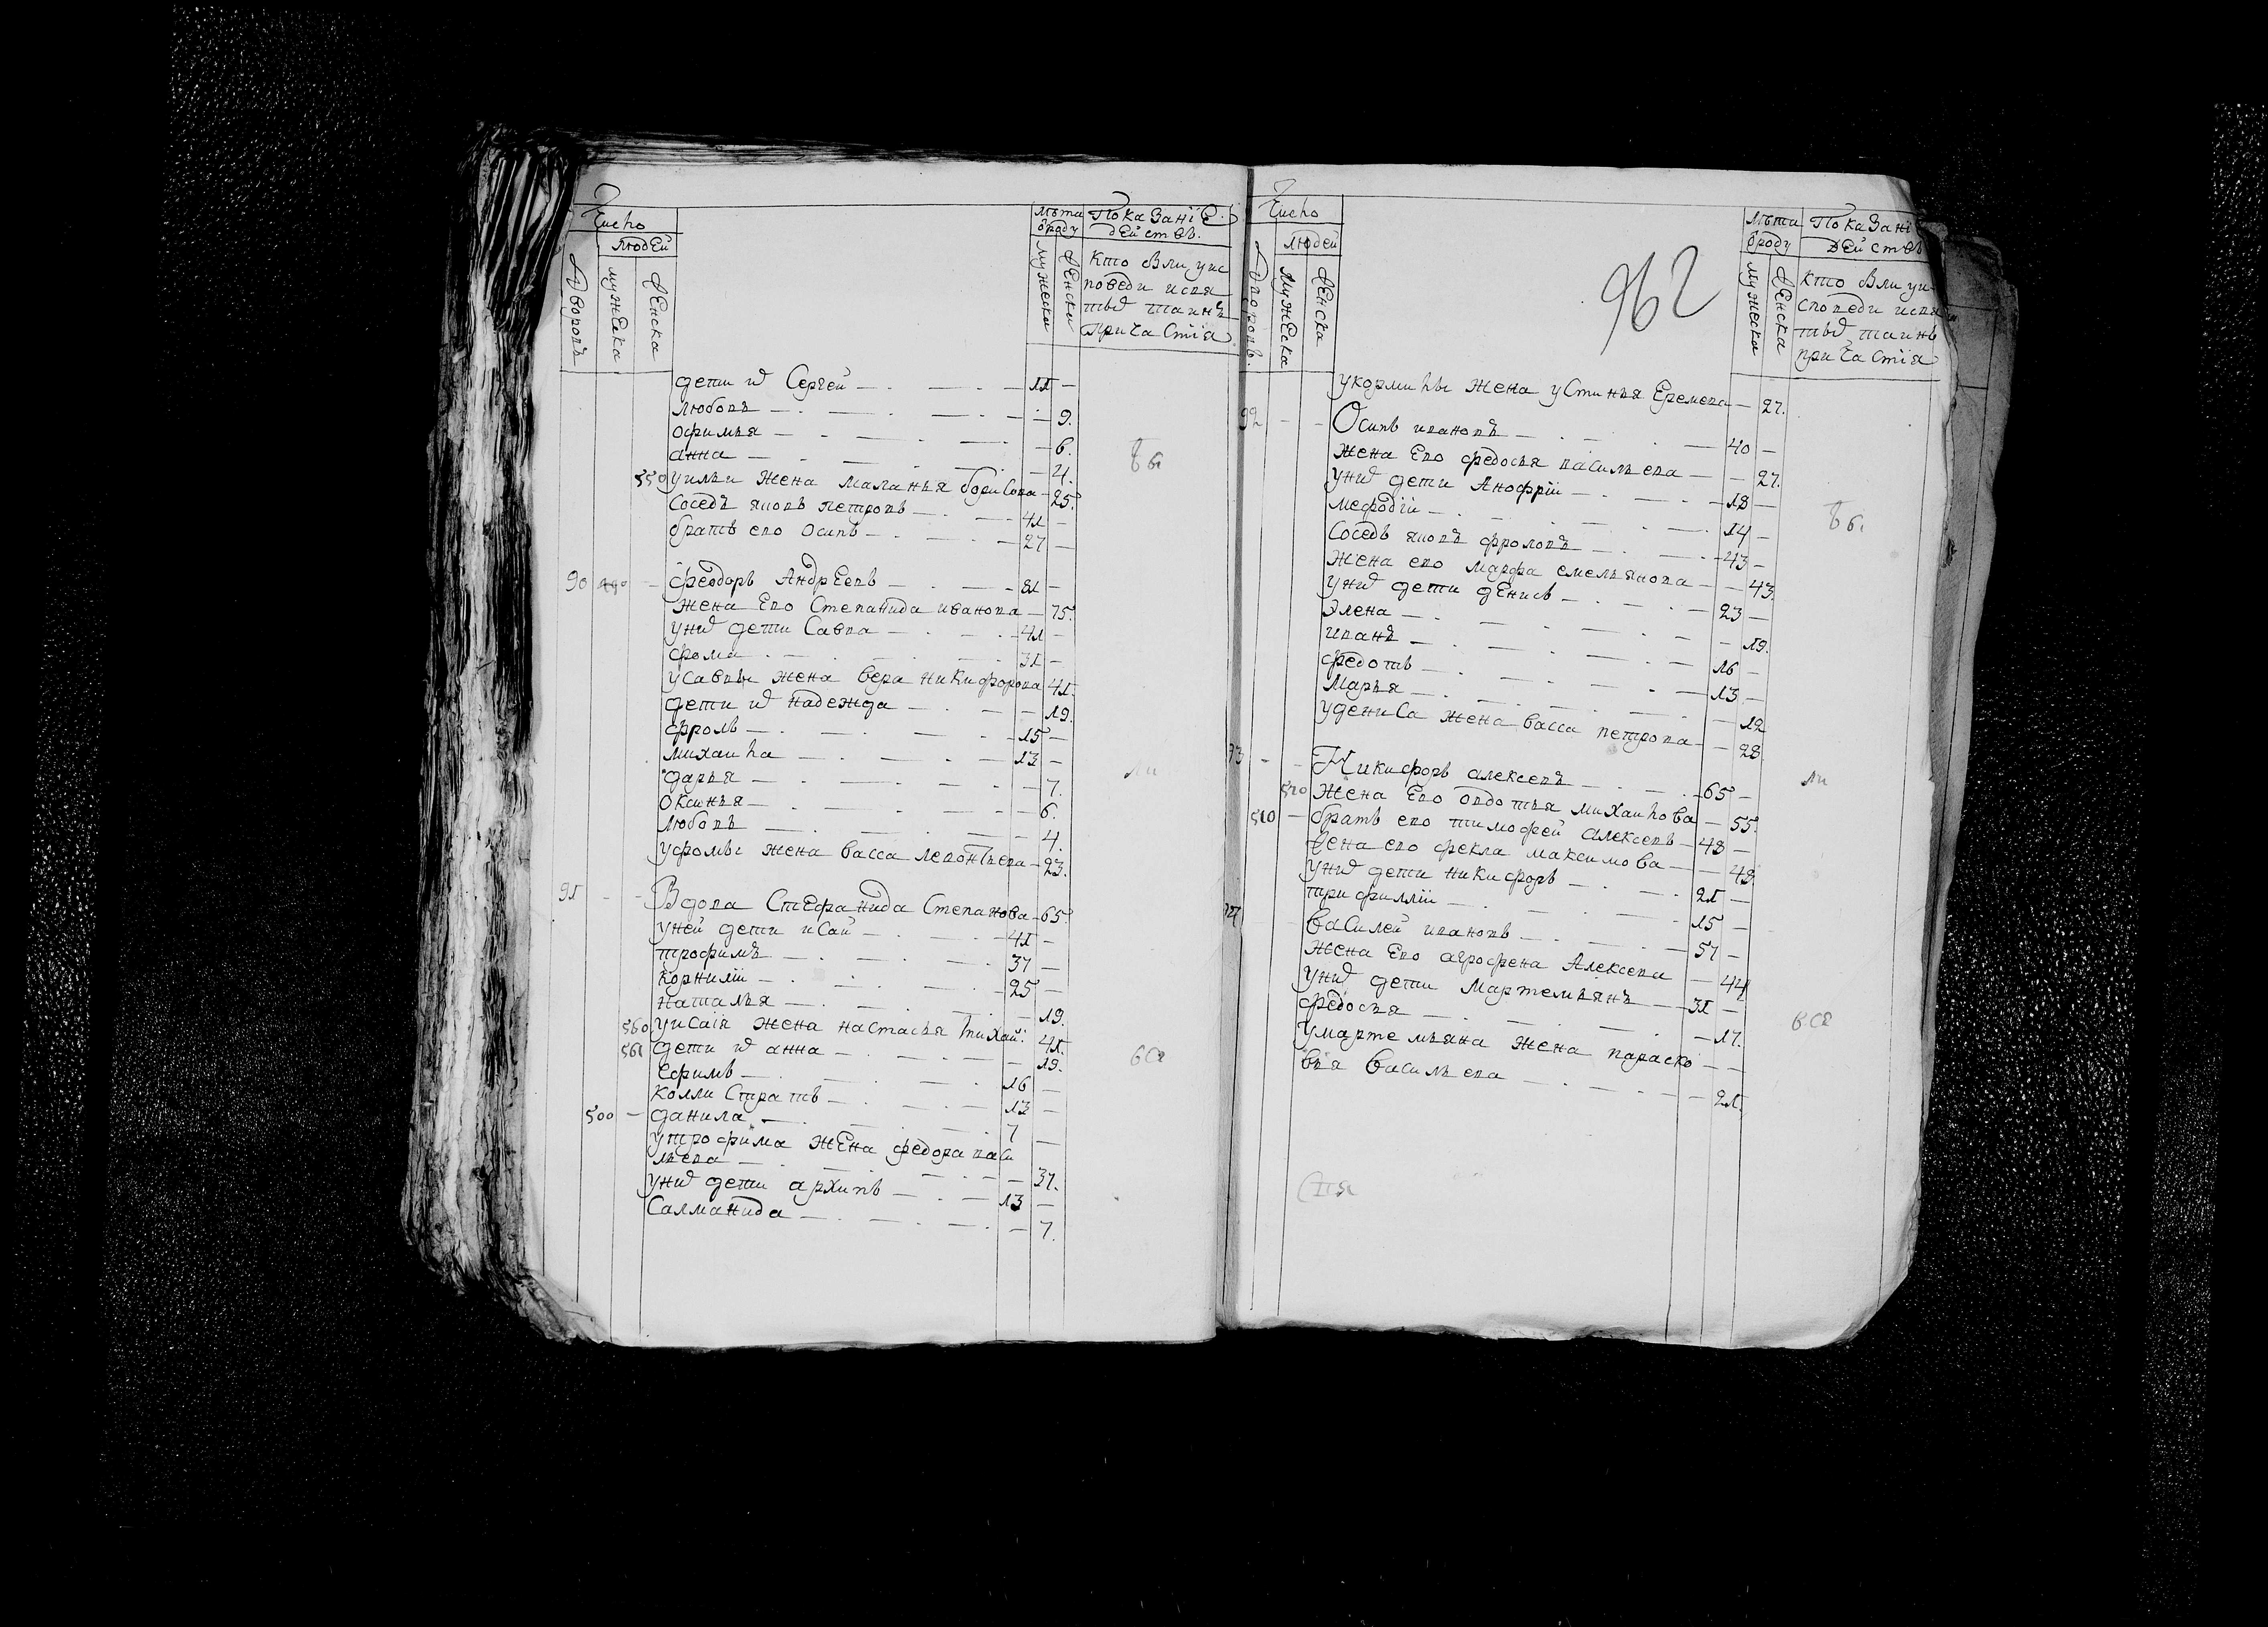 Число
Людей
Дворовъ
мужеска
женска
Лѣта
ѿроду
мужеска
женска
Показанiе
действъ.
Кто былъ уис
поведи исвя
тыхъ таинъ
причастiя
дети их Сергей — 11 —
любовь — 9.
офимья — 6.
анна — 4.
550 уильи жена маланья борисова — 25.
Соседъ яковъ петровъ — 41 —
братъ ево осипъ — 27 —
90 — феодоръ Андреевъ — 81 —
жена Ево Степанида иванова — 75.
уних дети Савва — 41 —
фома — 31 —
усаввы жена вера никифорова 41.
дети их надежда — 19.
фролъ — 15 —
михаила — 13 —
дарья — 7.
оксинья — 6.
любовь — 4.
уфомы жена васса левонтьева — 23.
91 — Вдова Стефанида Степанова — 65.
уней дети исай — 41 —
трофимъ — 37 —
корнилiи — 25 —
наталья — 19.
560 уисаiя жена настасья михай: 41.
561 дети их анна — 19.
Ефимъ — 16 —
каллистратъ — 13 —
500 — данила — 7 —
утрофима жена федора васи
льева — 37.
уних дети архипъ — 13 —
Салманида — 7.
вы
ли
вся
Число
людей
Дворовъ
мужеска
женска
962
Лѣта
ѿроду
мужеска
женска
Показанi
действъ
Кто былъ уи
споведи исвя
тыхъ таинъ
причастiя
укорнилы жена устинья Еремева — 27.
92 — Осипъ ивановъ — 40 —
жена Ево федосья васильева — 27.
уних дети Анофрiи — 18 —
мефодiи — 14 —
Соседъ яковъ фроловъ — 43 —
жена ево марфа емельянова — 43.
уних дети денисъ — 23 —
Элена — 19.
иванъ — 16 —
федотъ — 13 —
Марья — 12
удениса жена васса петрова — 28.
93 — Никифоръ алексевъ — 65 —
570 жена Ево овдотья михаилова — 55.
510 — братъ ево тимофей алексевъ — 48 —
жена ево фекла максимова — 48.
уних дети никифоръ — 21 —
трифиллiи — 15 —
василей ивановъ — 57 —
жена Ево агрофена Алексева — 44
уних дети Мартемьянъ — 31 —
федосья — 17.
умартемьяна жена параско — —
вья васильева — 21.
вы
ли
вся